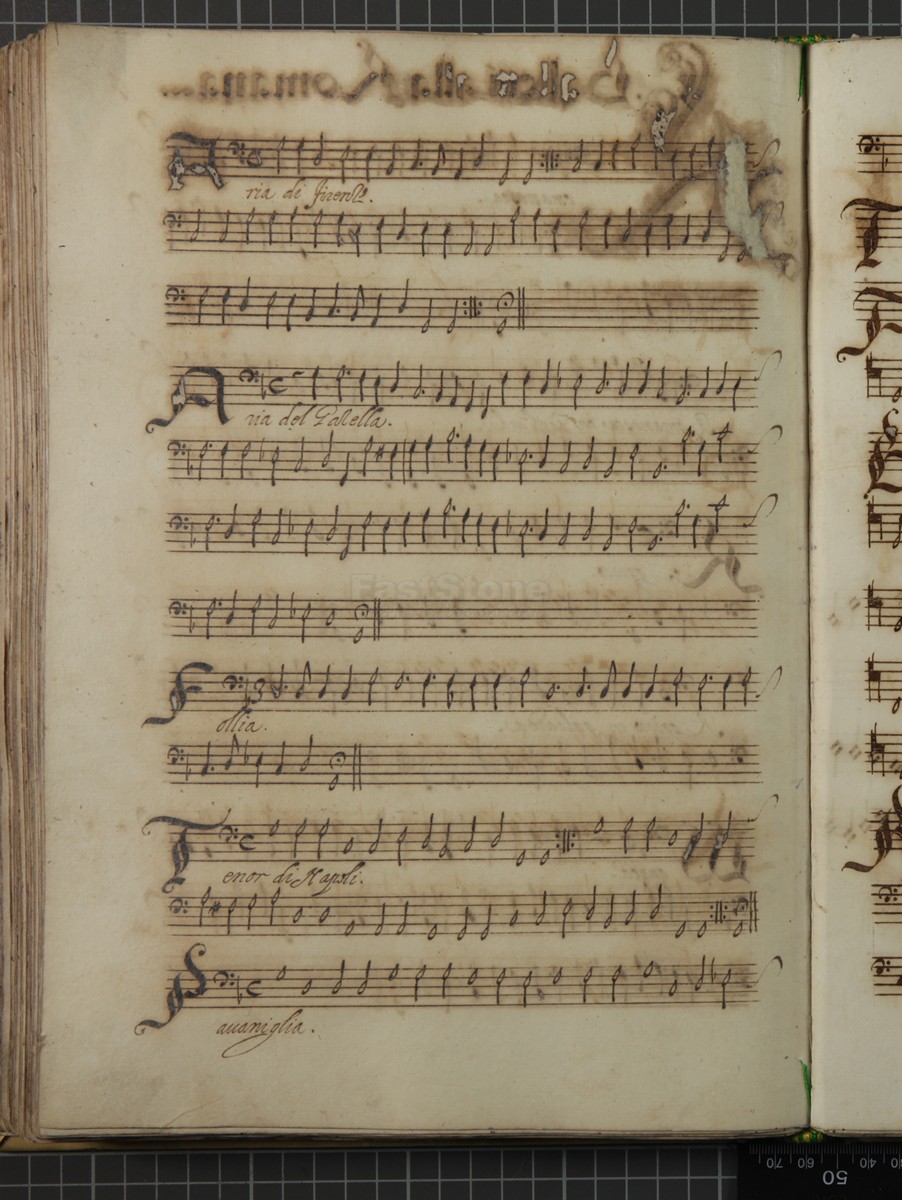 Aria di firenze.
Aria del Gazella.
FastStone
Follia.
Tenor di Napoli.
Pauaniglia.
50
70 60
40